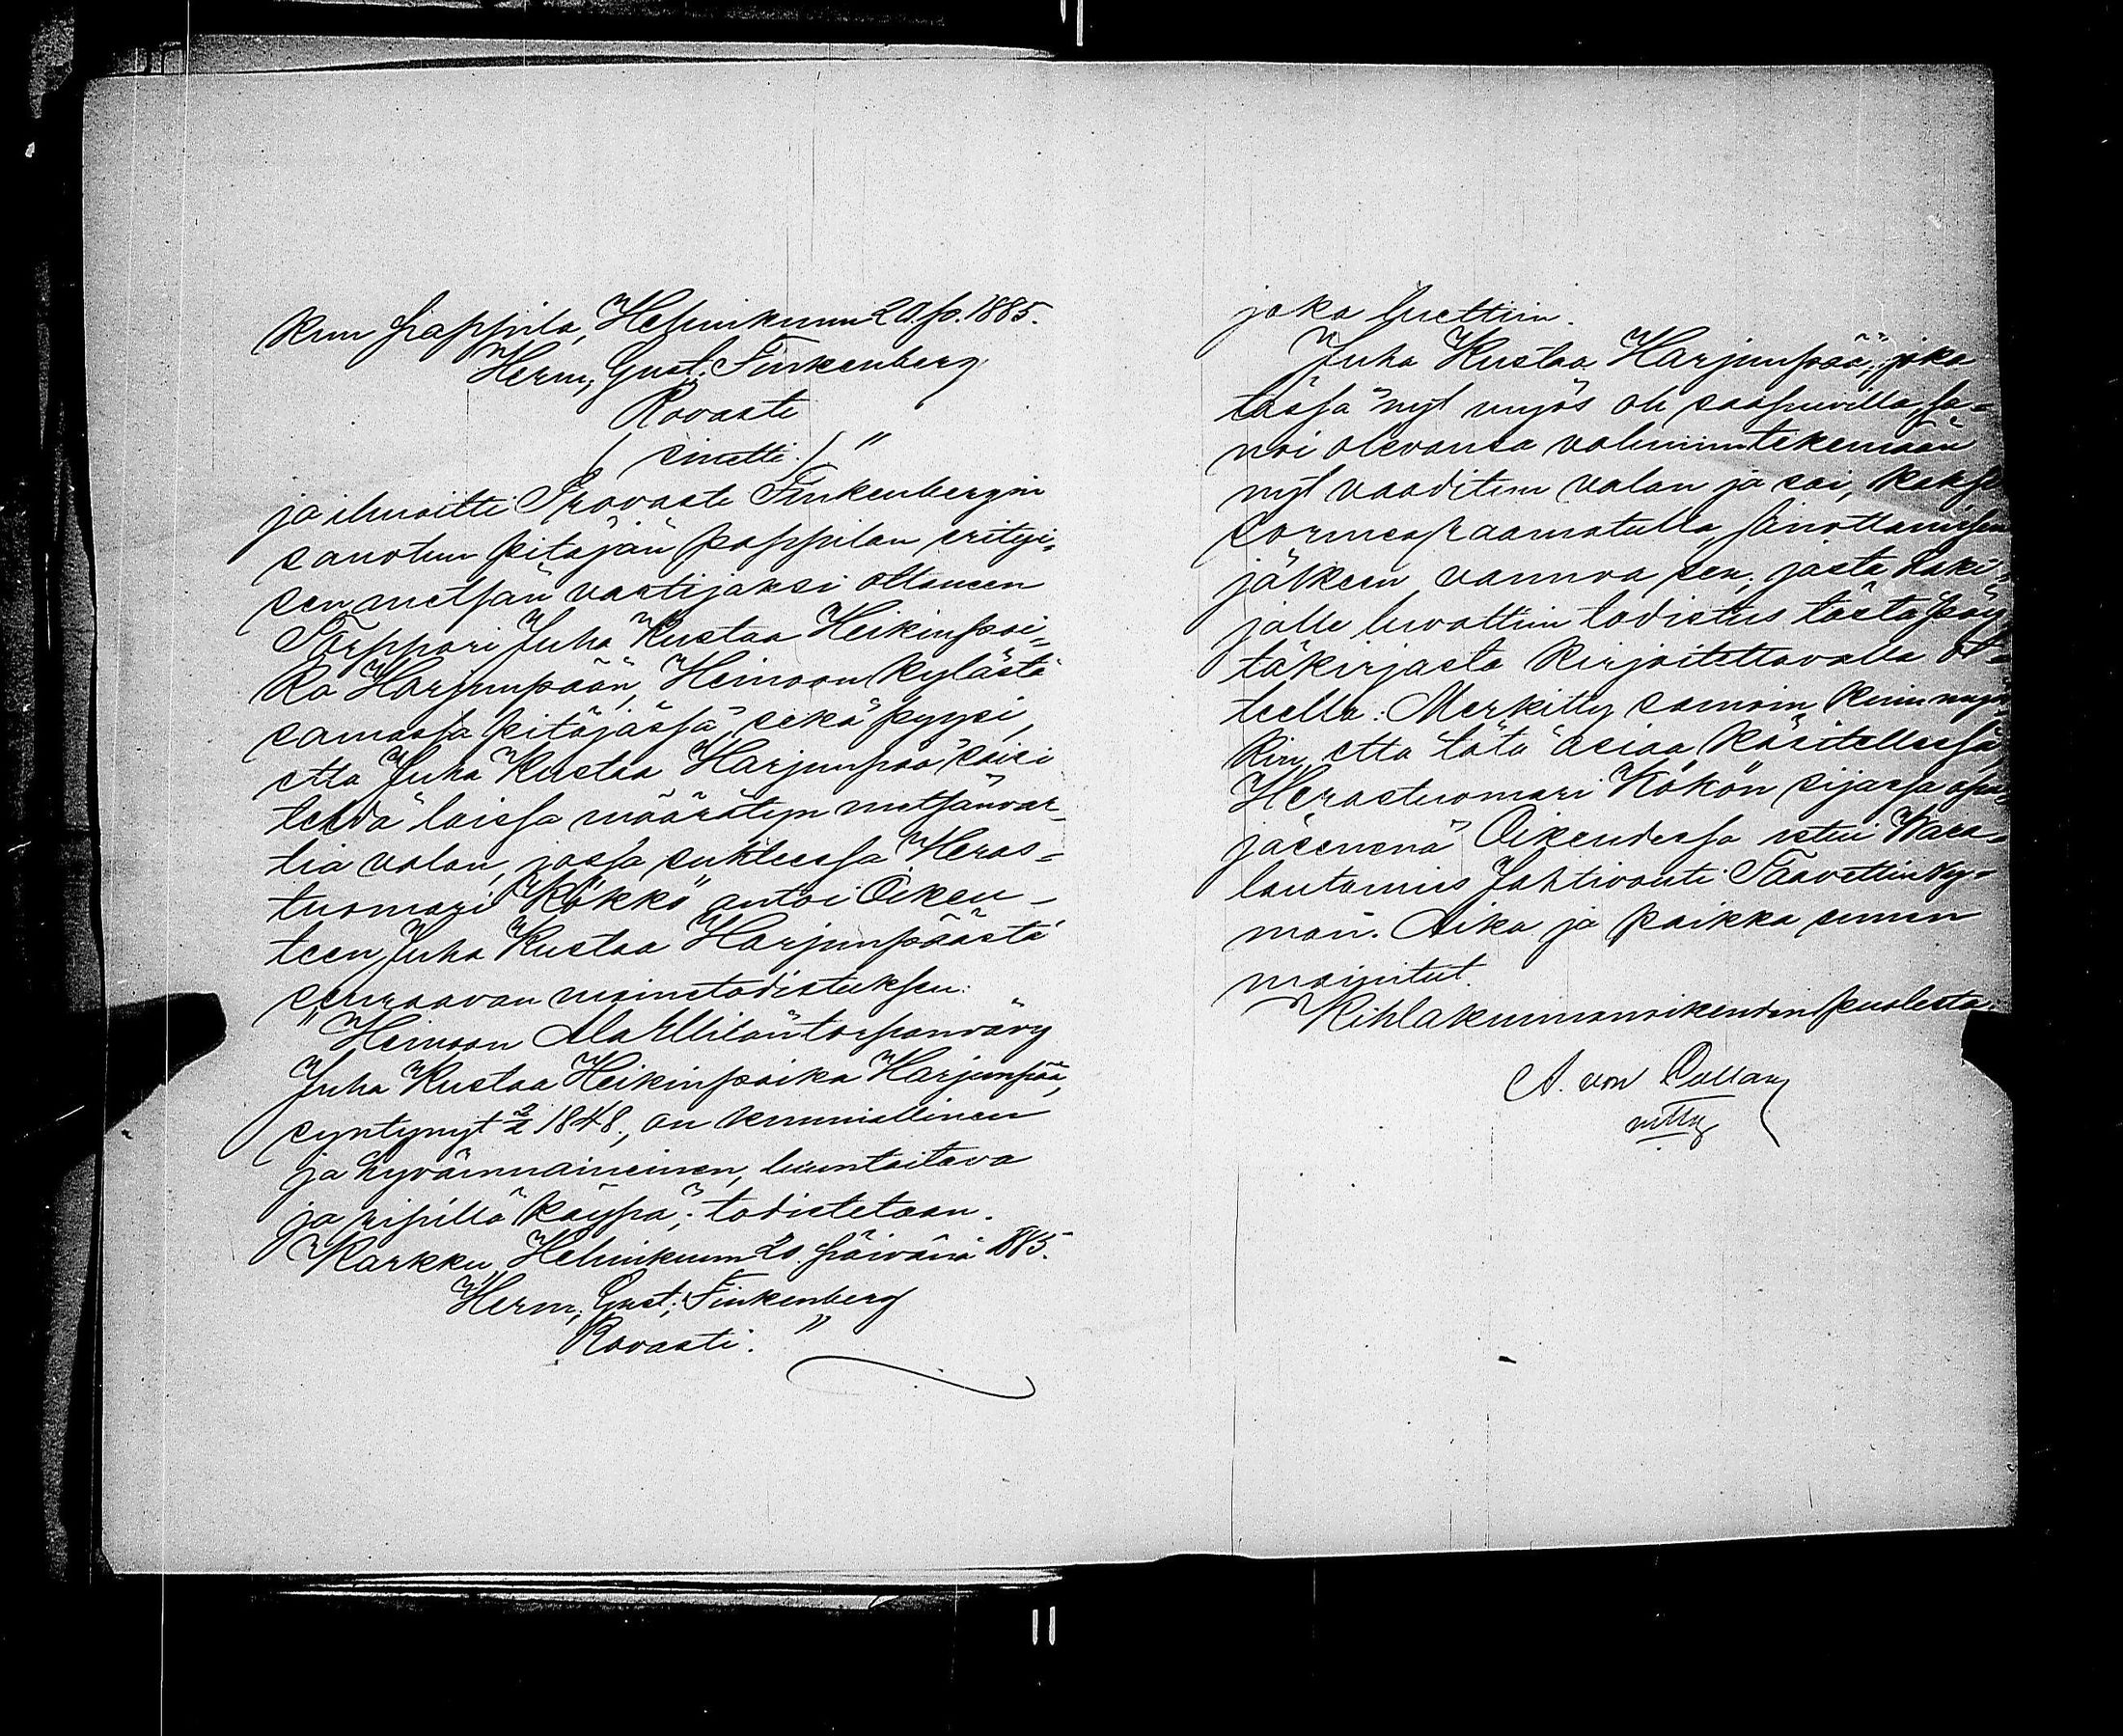 kun pappila, Helmikuun 20 p. 1885.
Herm. Gust. Finkenberg
Rovasti
(sinetti.)"
ja ilmoitti Provasti Finkenbergin
sanotun pitäjän pappilan erityi-
sen metsän vartijaksi ottaneen
Torppari Juha Kustaa Heikinpoi-
ka Harjunpään, Heinoon kylästä
samassa pitäjässä, sekä pyysi,
että Juha Kustaa Harjunpää saisi
tehdä laissa määrätyn metsänvar-
tia valan, jossa suhteessa Heras-
tuomari Kökkö antoi Oikeu-
teen Juha Kustaa Harjunpäästä
seuraavan mainetodistuksen:
"Heinoon Ala torpanvävy
Juha Kustaa Heikinpoika Harjunpää,
syntynyt 2/2 1848, on kunniallinen
ja hyvämaineinen, luuntaitava
ja ripillä käypä; todistetaan.
Karkku, Helmikuun 20. päivänä 1885.
Herm. Gust. Finkenberg
Rovasti."
joka luettiin.
Juha Kustaa Harjunpää, joka
tässä nyt myös oli saapuvilla, sa-
noi olevansa valmiin tekemään
nyt vaaditun valan ja sai, kaksi
sormea raamatulla,
jälkeen vannoa sen; josta haki-
jalle luvattiin todistus tästä pöy-
täkirjasta kirjoitettavalla ot-
teella. Merkitty samoin kuin
kin, että tätä asiaa käsitellessä,
Herastuomari Kökön sijassa apu-
jäsenenä Oikeudessa istui Vara-
lautamies Jahtivouti Taavetti Ny-
man. Aika ja paikka ennen
mainitut.
Kihlakunnanoikeuden puolesta:
A. von Collan